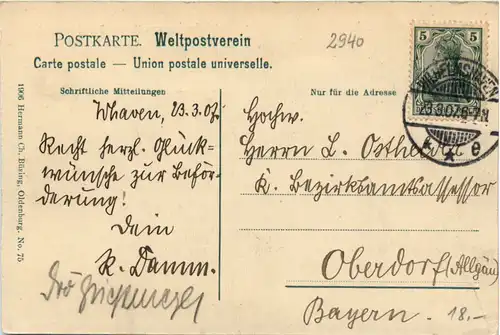 POSTKARTE. Weltpostverein
Carte postale — Union postale universelle.
2940
5 5
WILHELMSHAVEN
23.3.07.6-7N
* e
Schriftliche Mitteilungen
Nur für die Adresse
Whaven, 23.3.07.
Recht herzl. Glück-
wünsche zur Beför-
derung!
Dein
K. Damm.
Hochw.
Herrn L.
K. Bezirksamtsassessor
Oberdorf (Allgäu)
Bayern.
18.-
1906 Hermann Ch. Büsing, Oldenburg. No. 75